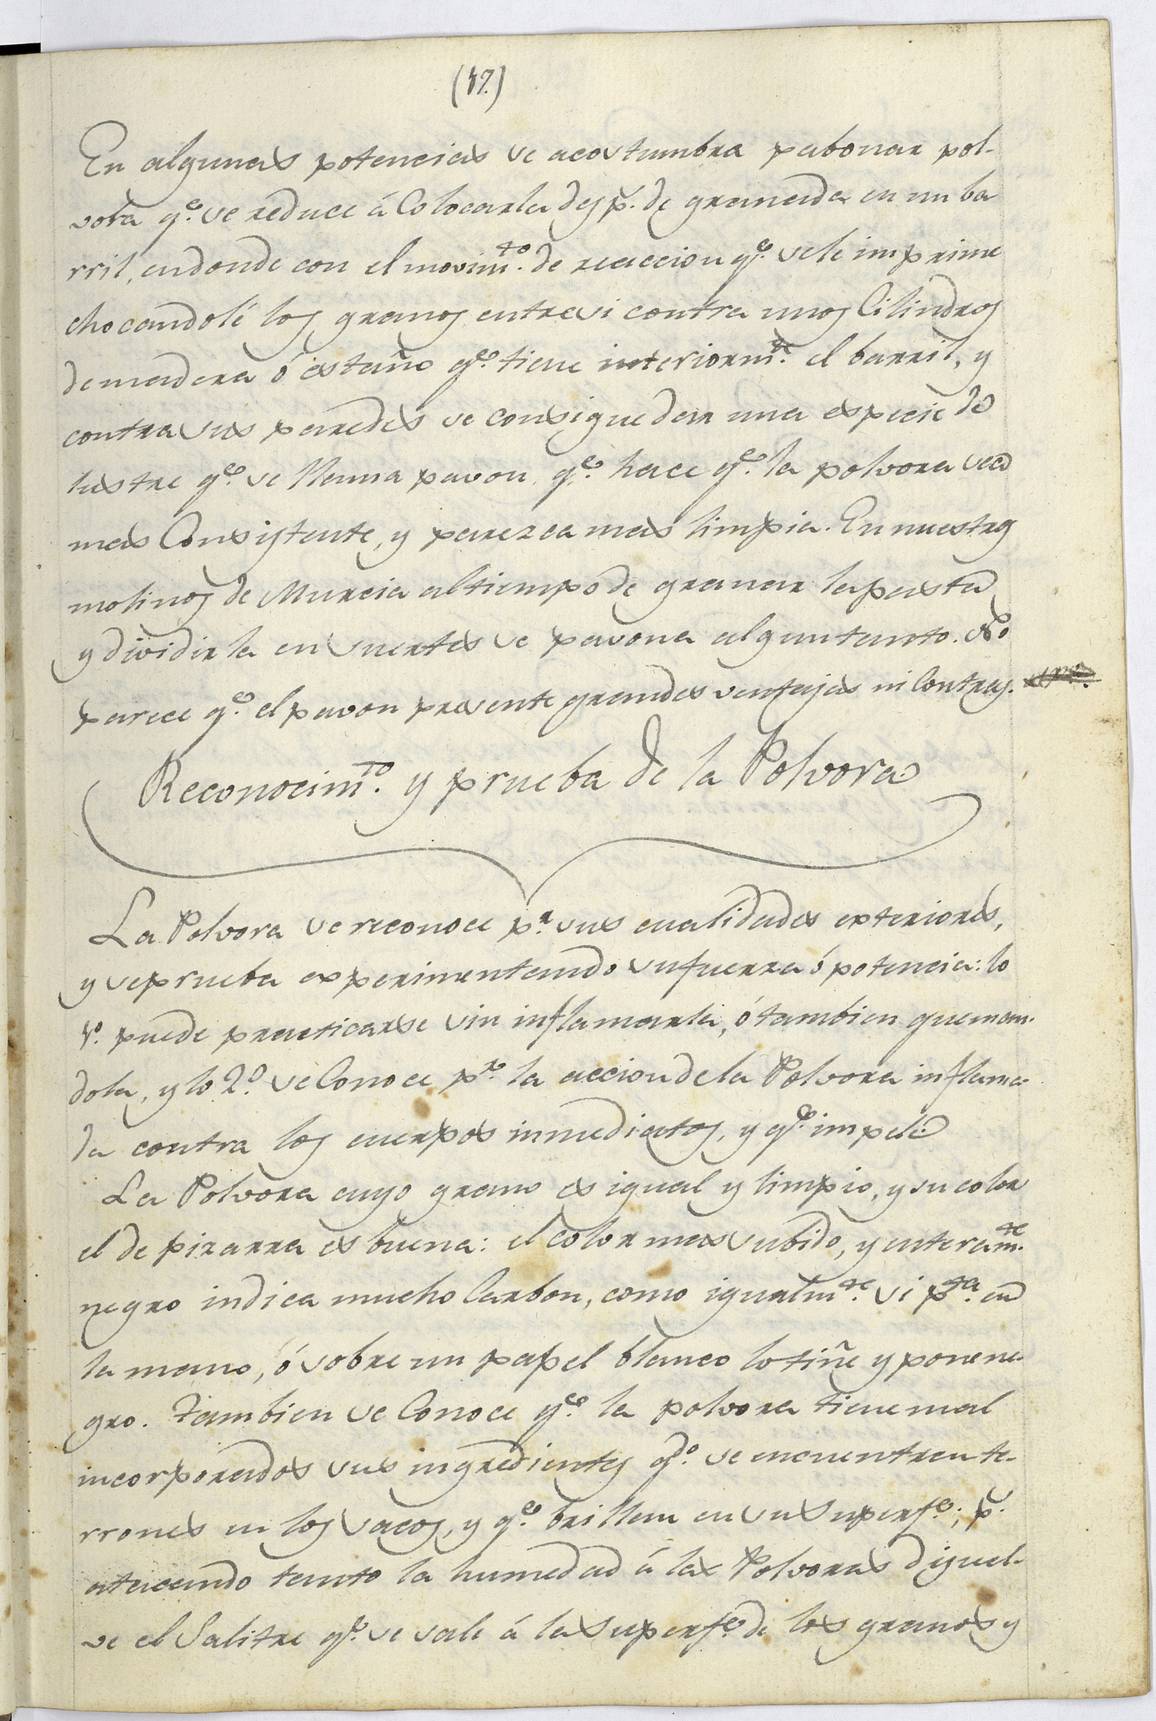 (17.)
En algunas potencias se acostumbra pabonar pol-
vora q.e se reduce á Colocarla desp.s de graneada en un ba
rril, endonde con el movim.to de reaccion q.e sele imprime
chocandolé los granos entresi contra unos Cilindros
demadera ó estaño q.e tiene interiorm.te el barril, y
contra sus paredes se consigue dar una especie de
lustre q.e se llama pavon q.e hace q.e la polvora sea
mas Consistente, y parezca mas limpia. En nuestros
molinos de Murcia altiempo de granar lapasta
y dividirla en suertes se pavona algun tanto. No
parece q.e el pavon presente grandes ventajas ni Contras.
Reconocim.to y prueba de la Polvora
La Polvora se reconoce p.r sus cualidades exteriores,
y seprueba experimentando sufuerza ó potencia: lo
1.o puede practicarse sin inflamarla, ó tambien queman-
dola, y lo 2.o se Conoce p.r la accion dela Polvora inflama-
da contra los cuerpos inmediatos, y q.e impele
La Polvora cuyo grano es igual y limpio, y su color
el de pizarra es buena: el color mas subido, y enteram.te
negro indica mucho Carbon, como igualm.te si p.ta en
la mano, ó sobre un papel blanco lo tiñe y pone ne-
gro. Tambien se Conoce q.e la polvora tiene mal
incorporados sus ingredientes q.do se encuentran te-
rrones en los sacos, y q.e brillan en su superf.e; p.s
atacando tanto la humedad á las Polvoras disuel-
ve el Salitre q.e se sale á la superf.e de los granos y